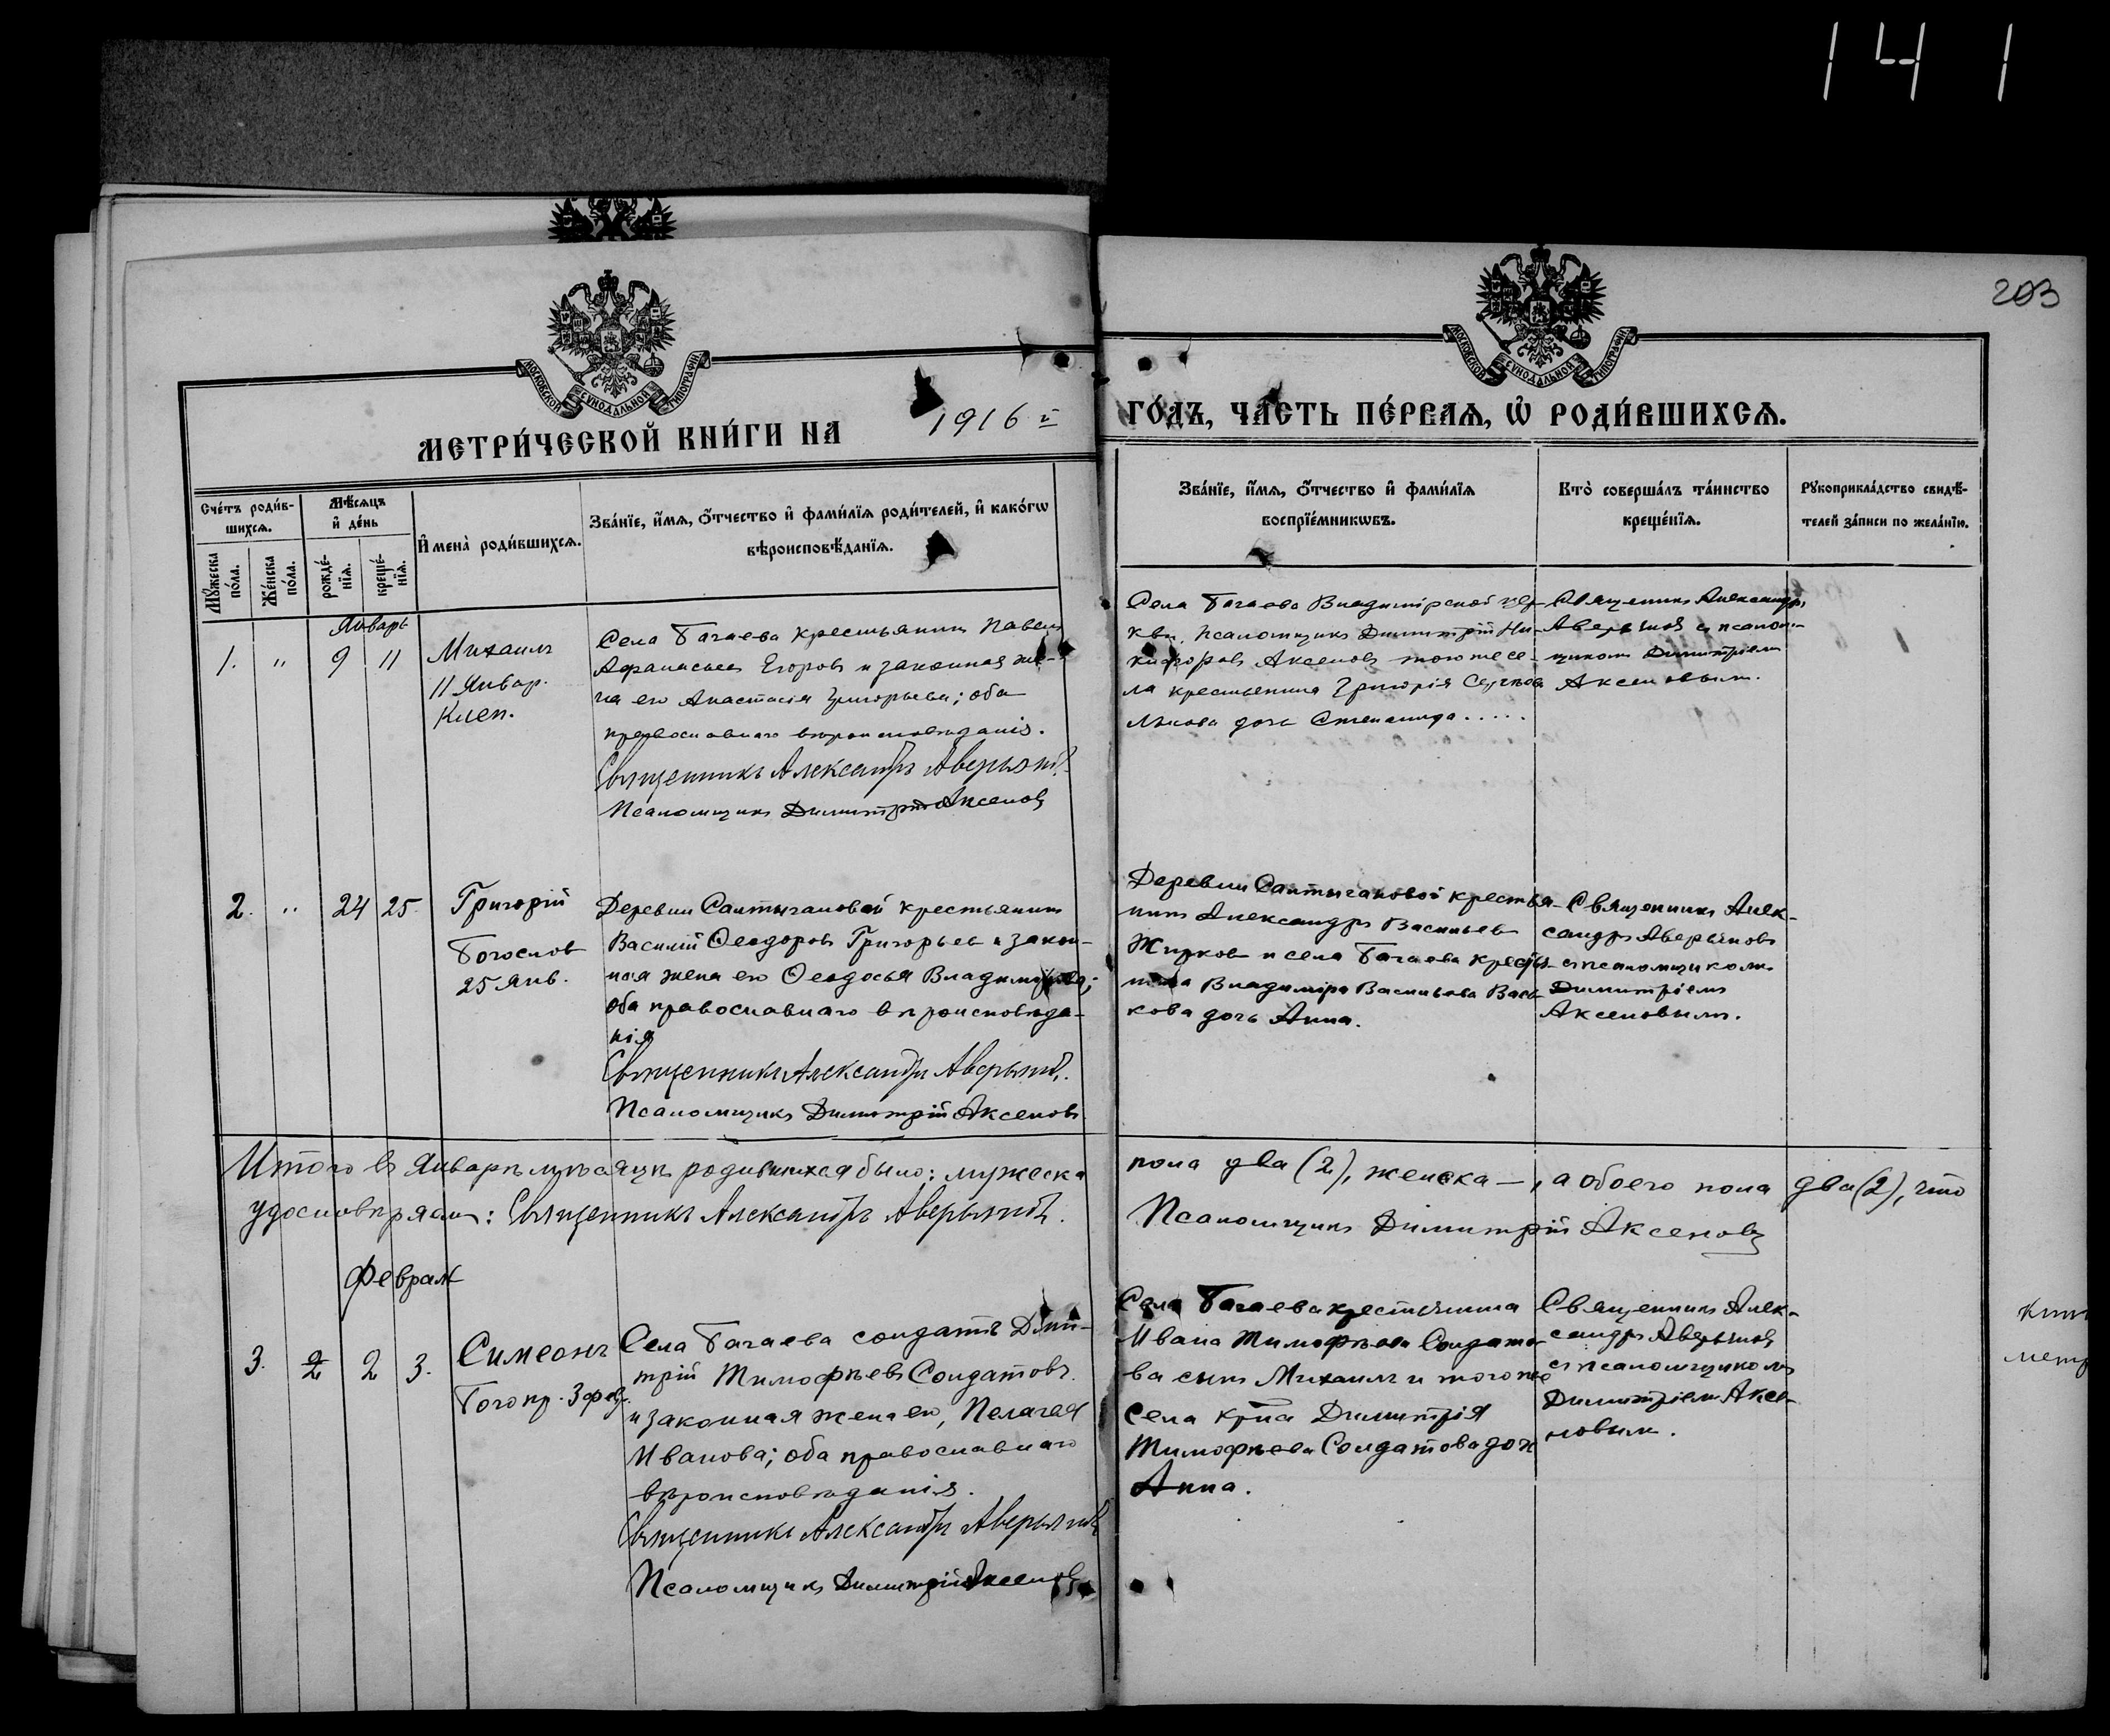 141
203
МОСКОВСКОЙ СѴНОДАЛЬНОЙ ТИПОГРАФІИ
МОСКОВСКОЙ СѴНОДАЛЬНОЙ ТИПОГРАФІИ
МЕТРИ́ЧЕСКОЙ КНИ́ГИ НА 1916 й
ГО́ДЪ, ЧА́СТЬ ПЕ́РВАѦ, Ѽ РОДИ́ВШИХСѦ.
Сче́тъ роди́в-
шихсѧ.
Мꙋ́жеска
по́ла.
Же́нска
по́ла.
Мѣ́сѧцъ
и҆ де́нь
рожде́-
нїѧ.
креще́-
нїѧ.
И҆мена̀ роди́вшихсѧ.
Зва́нїе, и҆́мѧ, ѻ҆́тчество и҆ фами́лїѧ роди́телей, и҆ како́гѡ
вѣроисповѣ́данїѧ.
Зва́нїе, и҆́мѧ, ѻ҆́тчество и҆ фами́лїѧ
воспрїе́мникѡвъ.
Кто̀ соверша́лъ та́инство
креще́нїѧ.
Рꙋкоприкла́дство свидѣ́-
телей за́писи по жела́нїю.
Январь
1. " 9 11
Михаилъ
11 Январ.
Села Багаева крестьянинъ Павелъ
Афанасьевъ Егоровъ и законная же-
на его Анастасія Григорьева; оба
православнаго вѣроисповѣданія.
Священникъ Александръ Аверьяновъ
Псаломщикъ Димитрій Аксеновъ
Села Багаева Владимірской цер-
кви, псаломщикъ Димитрій Ни-
кифоровъ Аксеновъ тогоже се-
ла крестьянина Григорія
дочь Степанида.....
Священникъ Александръ
Аверьяновъ съ псалом-
щикомъ Димитріемъ
Аксеновымъ.
2. " 24 25.
Григорій
Богослов
25 Янв.
Деревни Салтыгановой крестьянинъ
Василій Ѳеодоровъ Григорьевъ и закон-
ная жена его Ѳеодосья Владимірова;
оба православнаго вѣроисповѣда-
нія
Священникъ Александръ Аверьяновъ.
Псаломщикъ Димитрій Аксеновъ
Деревни Салтыгановой крестья-
нинъ Александръ Васильевъ
Жирковъ и села Багаева кресть-
янина Владиміра Васильева Вась-
кова дочь Анна.
Священникъ Алек-
сандръ Аверьяновъ
съ псаломщикомъ
Димитріемъ
Аксеновымъ.
Итого въ Январѣ мѣсяцѣ родившихся было: мужеска
пола два (2), женска —, а обоего пола два (2), что
удостовѣряемъ: Священникъ Александръ Аверьяновъ.
Псаломщикъ Димитрій Аксеновъ
Февраль
3. 2 2 3.
Симеонъ
Богопр. 3 фев.
Села Багаева солдатъ Дими-
трій Тимофѣевъ Солдатовъ
и законная жена его, Пелагея
Иванова; оба православнаго
вѣроисповѣданія.
Священникъ Александръ Аверьяновъ
Псаломщикъ Димитрій Аксеновъ
Села Багаева крестьянина
Ивана Тимофѣева Солдато-
ва сынъ Михаилъ и того же
села кр͠на Димитрія
Тимофѣева Солдатова дочь
Анна.
Священникъ Алек-
сандръ Аверьяновъ
съ псаломщикомъ
Димитріемъ Аксе-
новымъ.